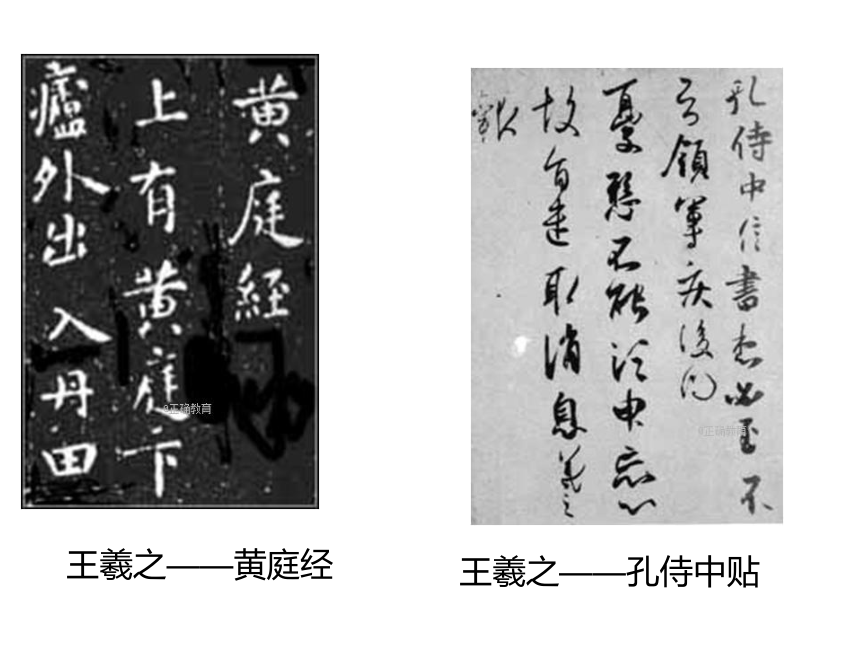 黄庭經
上有黄庭下
廬外出入丹田
@正确教育
王羲之——黄庭经
孔侍中信書想必至不
知領軍疾後問
憂懸不能須臾忘心
故旨遣取消息羲之
報
@正确教育
王羲之——孔侍中贴